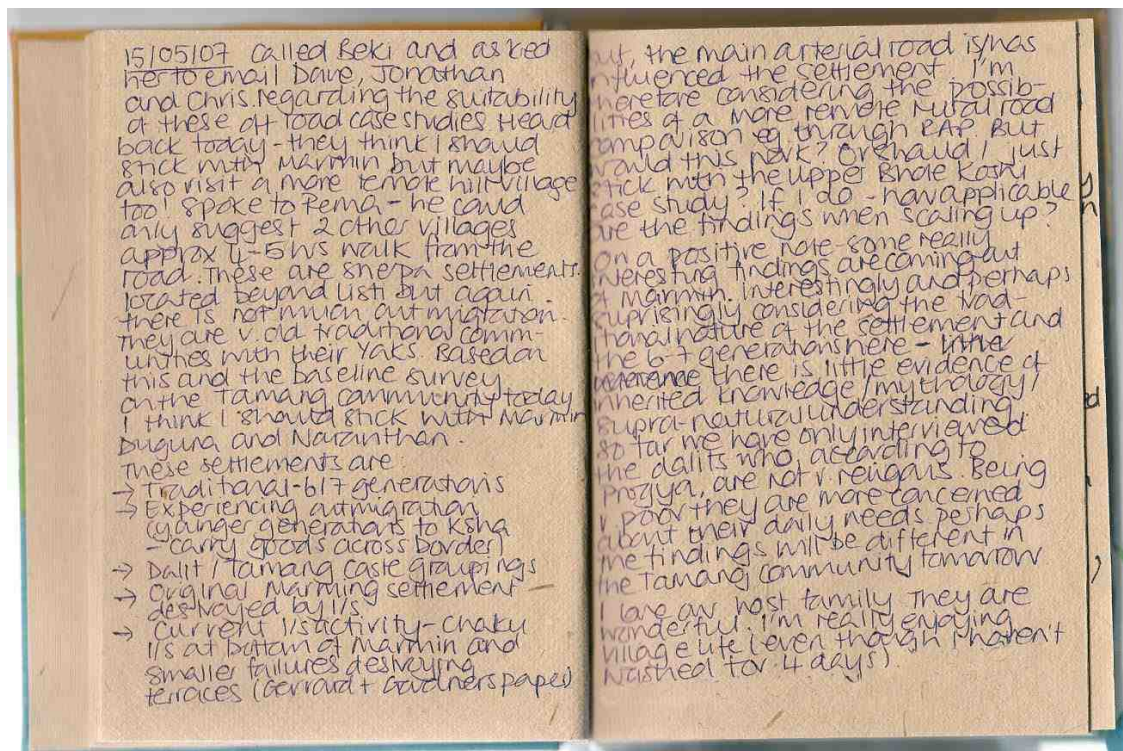 15/05/07 Called Beki and asked
her to email Dave, Jonathan
and Chris regarding the suitability
of these off road case studies. Heard
back today - they think I should
stick with Marmin but maybe
also visit a more remote hill village
too! Spoke to Pema - he could
only suggest 2 other villages
approx 4-5hrs walk from the
road. These are sherpa settlements
located beyond Listi but again
there is not much out migration.
They are v. old traditional comm-
unities with their Yaks. Based on
this and the baseline survey
on the Tamang community today
I think I should stick with Marmin
Duguna and Naranthan.
These settlements are:
→ Traditional - 6/7 generations
→ Experiencing outmigration
(younger generations to Ksha
- carry goods across border)
→ Dalit / Tamang caste groupings
→ Original Marming settlement -
destroyed by l/s
→ Current l/s activity - chaku
l/s at bottom of Marmin and
smaller failures destroying
terraces (Gerrard + Gardners paper)
but, the main arterial road is/has
nfluenced the settlement. I'm
herefore considering the possib-
lities of a more remote rural road
omparison eg through RAP. But
would this work? Or should I just
stick with the Upper Bhote Koshi
case study? If I do - how applicable
are the findings when scaling up?
On a positive note - some really
nteresting findings are coming out
of Marmin. Interestingly and perhaps
suprisingly considering the trad-
tional nature of the settlement and
the 6-7 generations here - little
there is little evidence of
inherited knowledge / mythology /
supra-natural understanding.
So far we have only interviewed
the dalits who, according to
Progya, are not v. religous. Being
v poor they are more concerned
about their daily needs perhaps
the findings will be different in
the Tamang community tomorrow
I love our host family They are
wonderful. I'm really enjoying
village life (even though I haven't
washed for 4 days).